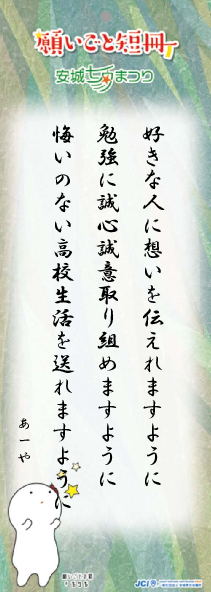 願いごと短冊
安城七夕まつり
好きな人に想いを伝えれますように
勉強に誠心誠意取り組めますように
悔いのない高校生活を送れますように
あーや
JCI